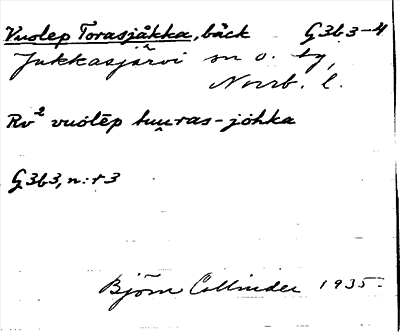 Vuolep Torasjåkka, bäck G3b3-4
Jukkasjärvi sn o. tg,
Norrb. l.
Rv² vuolēp tuu̯ras-johka
G3b3, n:r 3
Björn Collinder 1935.